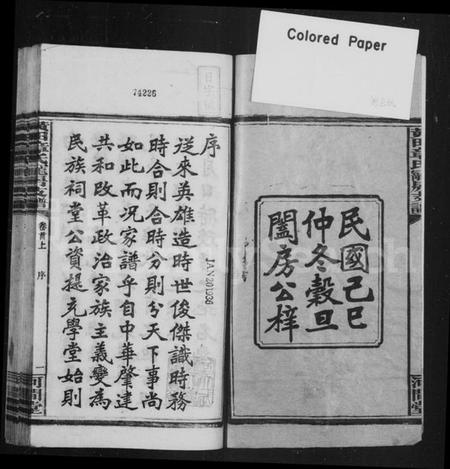 Colored Paper
民國己巳
仲冬穀旦
闔房公梓
河間堂
74226
JAN 20 1936
序
從來英雄造時世俊傑識時務
時合則合時分則分天下事尚
如此而況家譜乎自中華肇建
共和改革政治家族主義變為
民族祠堂公資提充學堂始則
卷首上
序
一
河間堂